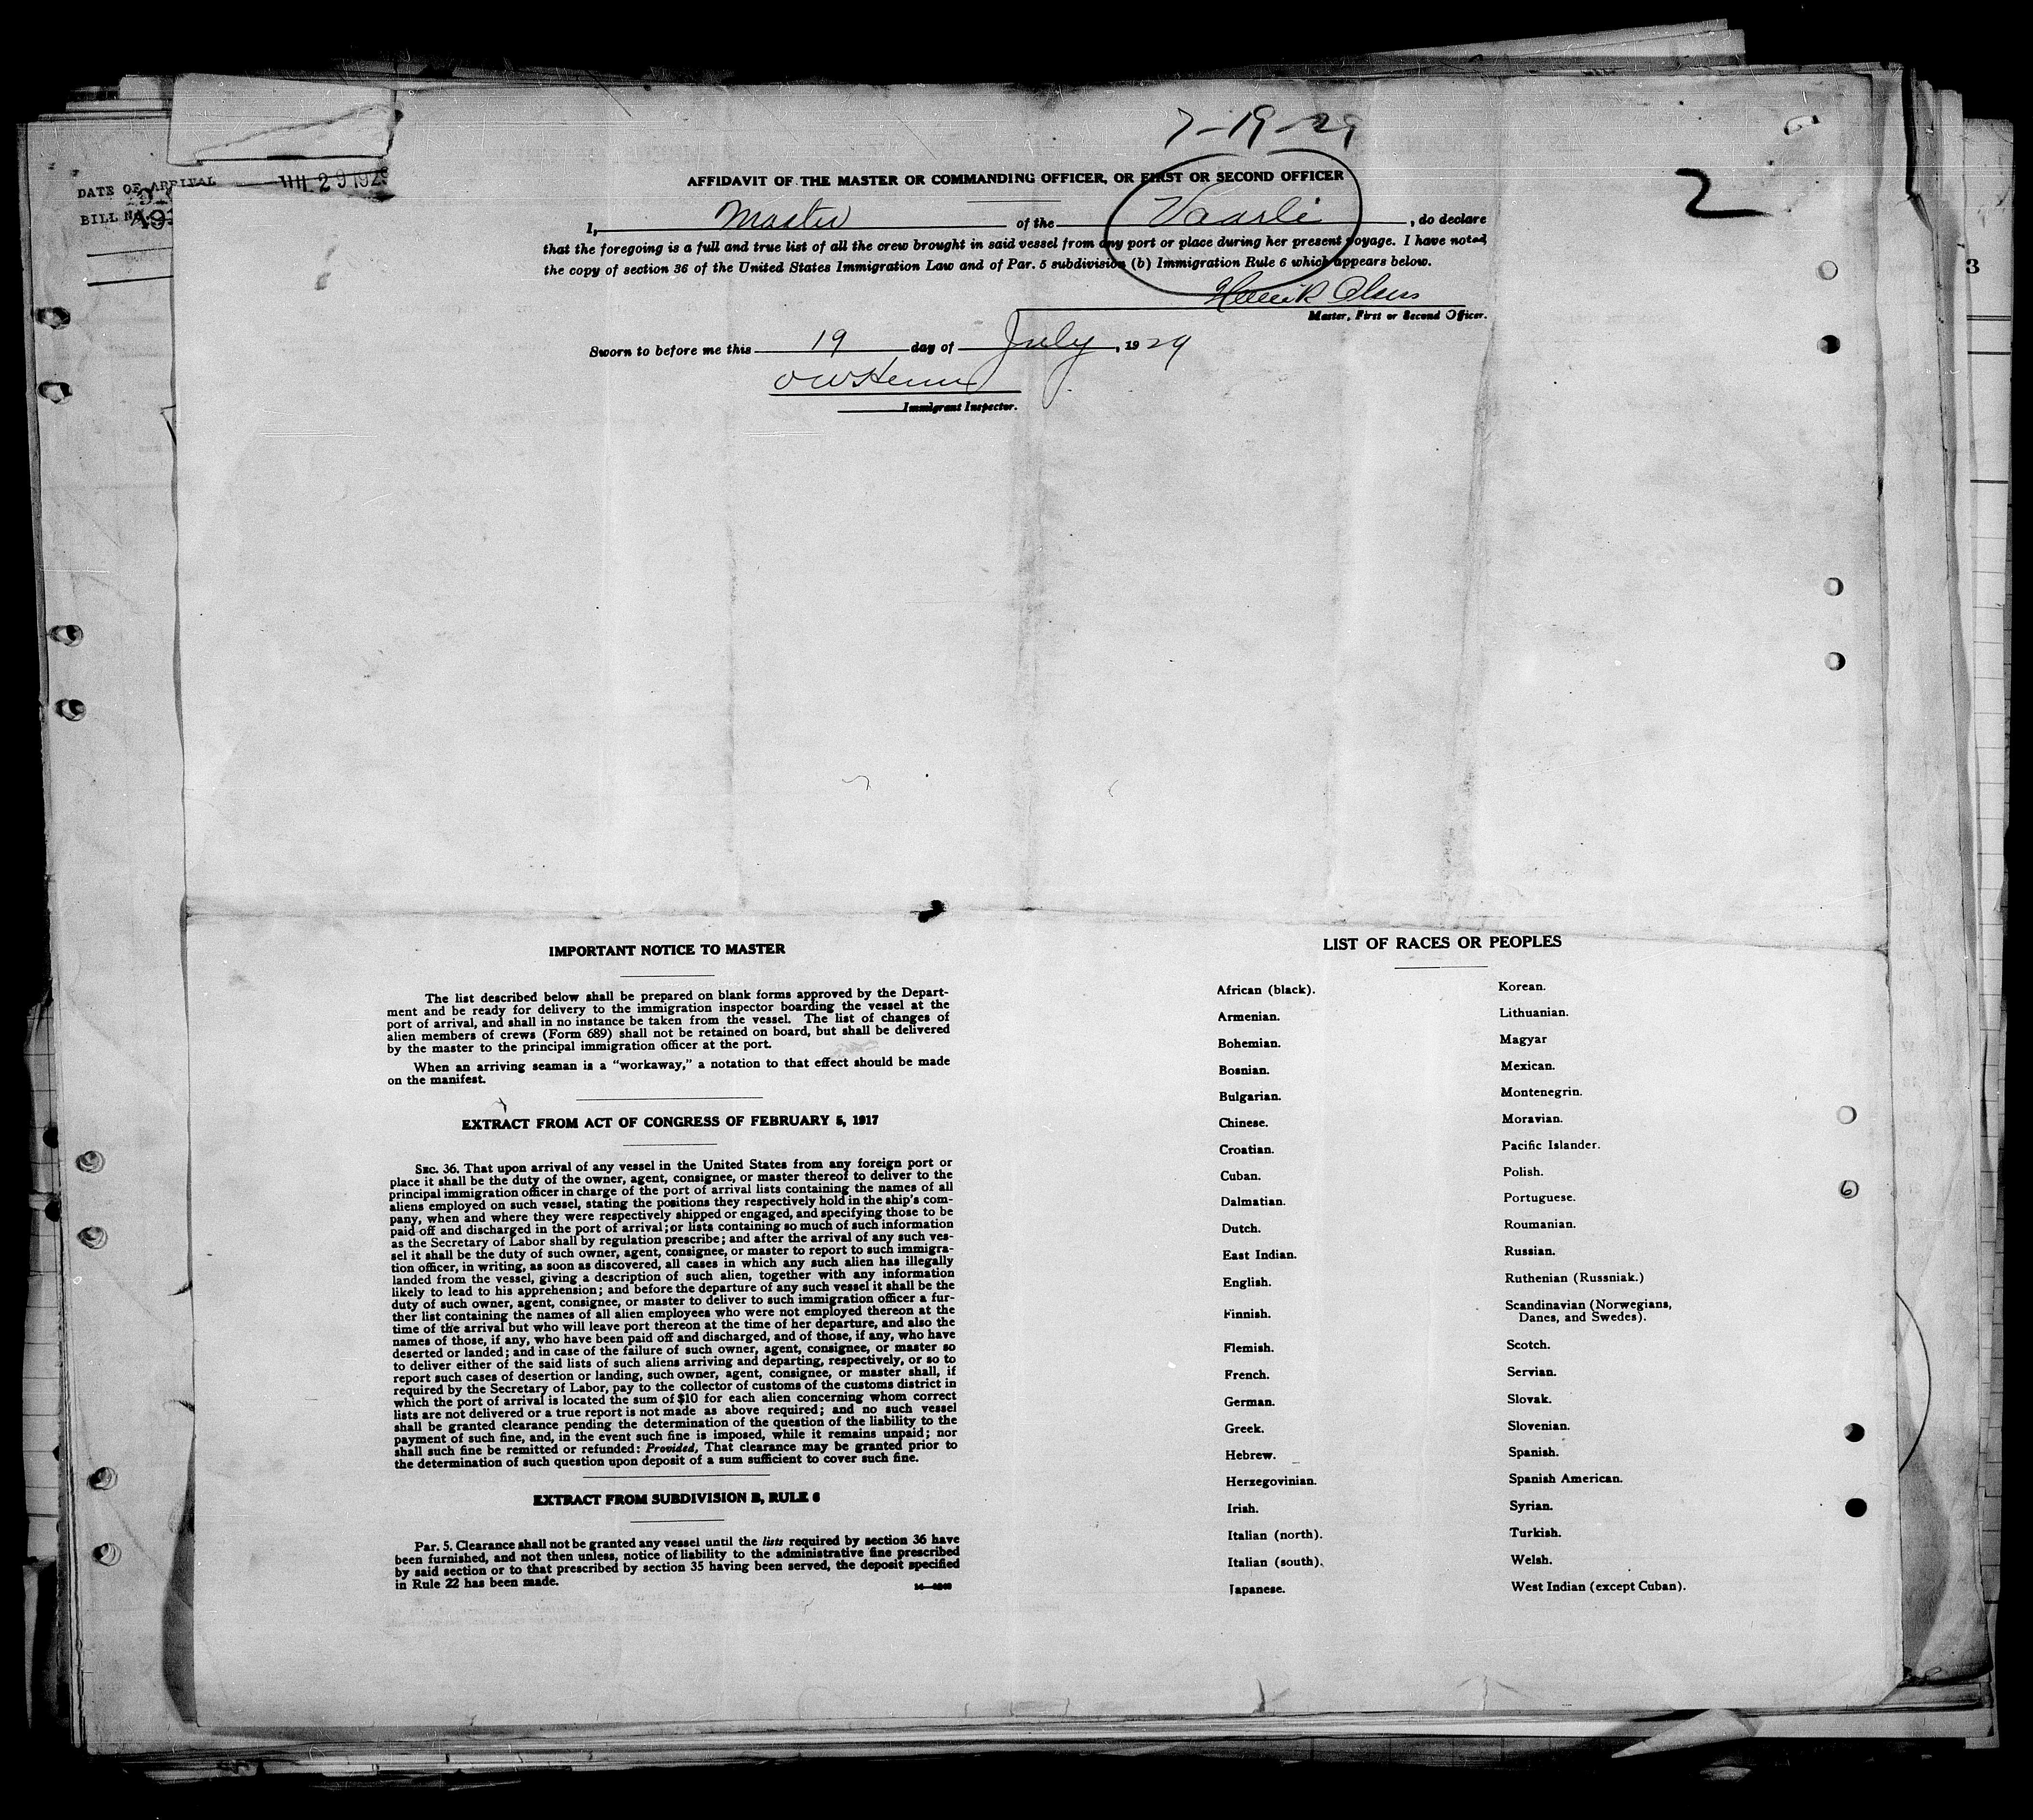 7-19-29
2
DATE OF ARRIVAL
BILL No.
29 1929
AFFIDAVIT OF THE MASTER OR COMMANDING OFFICER, OR FIRST OR SECOND OFFICER
I, Master of the Vaarli, do declare
that the foregoing is a full and true list of all the crew brought in said vessel from any port or place during her present voyage. I have noted
the copy of section 36 of the United States Immigration Law and of Par. 5 subdivision (b) Immigration Rule 6 which appears below.
Henrik Olsen
Master, First or Second Officer.
Sworn to before me this 19 day of July, 1929
Immigrant Inspector.
3
IMPORTANT NOTICE TO MASTER
The list described below shall be prepared on blank forms approved by the Depart-
ment and be ready for delivery to the immigration inspector boarding the vessel at the
port of arrival, and shall in no instance be taken from the vessel. The list of changes of
alien members of crews (Form 689) shall not be retained on board, but shall be delivered
by the master to the principal immigration officer at the port.
When an arriving seaman is a "workaway," a notation to that effect should be made
on the manifest.
EXTRACT FROM ACT OF CONGRESS OF FEBRUARY 5, 1917
SEC. 36. That upon arrival of any vessel in the United States from any foreign port or
place it shall be the duty of the owner, agent, consignee, or master thereof to deliver to the
principal immigration officer in charge of the port of arrival lists containing the names of all
aliens employed on such vessel, stating the positions they respectively hold in the ship's com-
pany, when and where they were respectively shipped or engaged, and specifying those to be
paid off and discharged in the port of arrival; or lists containing so much of such information
as the Secretary of Labor shall by regulation prescribe; and after the arrival of any such ves-
sel it shall be the duty of such owner, agent, consignee, or master to report to such immigra-
tion officer, in writing, as soon as discovered, all cases in which any such alien has illegally
landed from the vessel, giving a description of such alien, together with any information
likely to lead to his apprehension; and before the departure of any such vessel it shall be the
duty of such owner, agent, consignee, or master to deliver to such immigration officer a fur-
ther list containing the names of all alien employees who were not employed thereon at the
time of the arrival but who will leave port thereon at the time of her departure, and also the
names of those, if any, who have been paid off and discharged, and of those, if any, who have
deserted or landed; and in case of the failure of such owner, agent, consignee, or master so
to deliver either of the said lists of such aliens arriving and departing, respectively, or so to
report such cases of desertion or landing, such owner, agent, consignee, or master shall, if
required by the Secretary of Labor, pay to the collector of customs of the customs district in
which the port of arrival is located the sum of $10 for each alien concerning whom correct
lists are not delivered or a true report is not made as above required; and no such vessel
shall be granted clearance pending the determination of the question of the liability to the
payment of such fine, and, in the event such fine is imposed, while it remains unpaid; nor
shall such fine be remitted or refunded: Provided, That clearance may be granted prior to
the determination of such question upon deposit of a sum sufficient to cover such fine.
EXTRACT FROM SUBDIVISION B, RULE 6
Par. 5. Clearance shall not be granted any vessel until the lists required by section 36 have
been furnished, and not then unless, notice of liability to the administrative fine prescribed
by said section or to that prescribed by section 35 having been served, the deposit specified
in Rule 22 has been made.
LIST OF RACES OR PEOPLES
African (black).
Armenian.
Bohemian.
Bosnian.
Bulgarian.
Chinese.
Croatian.
Cuban.
Dalmatian.
Dutch.
East Indian.
English.
Finnish.
Flemish.
French.
German.
Greek.
Hebrew.
Herzegovinian.
Irish.
Italian (north).
Italian (south).
Japanese.
Korean.
Lithuanian.
Magyar
Mexican.
Montenegrin.
Moravian.
Pacific Islander.
Polish.
Portuguese.
Roumanian.
Russian.
Ruthenian (Russniak.)
Scandinavian (Norwegians,
Danes, and Swedes).
Scotch.
Servian.
Slovak.
Slovenian.
Spanish.
Spanish American.
Syrian.
Turkish.
Welsh.
West Indian (except Cuban).